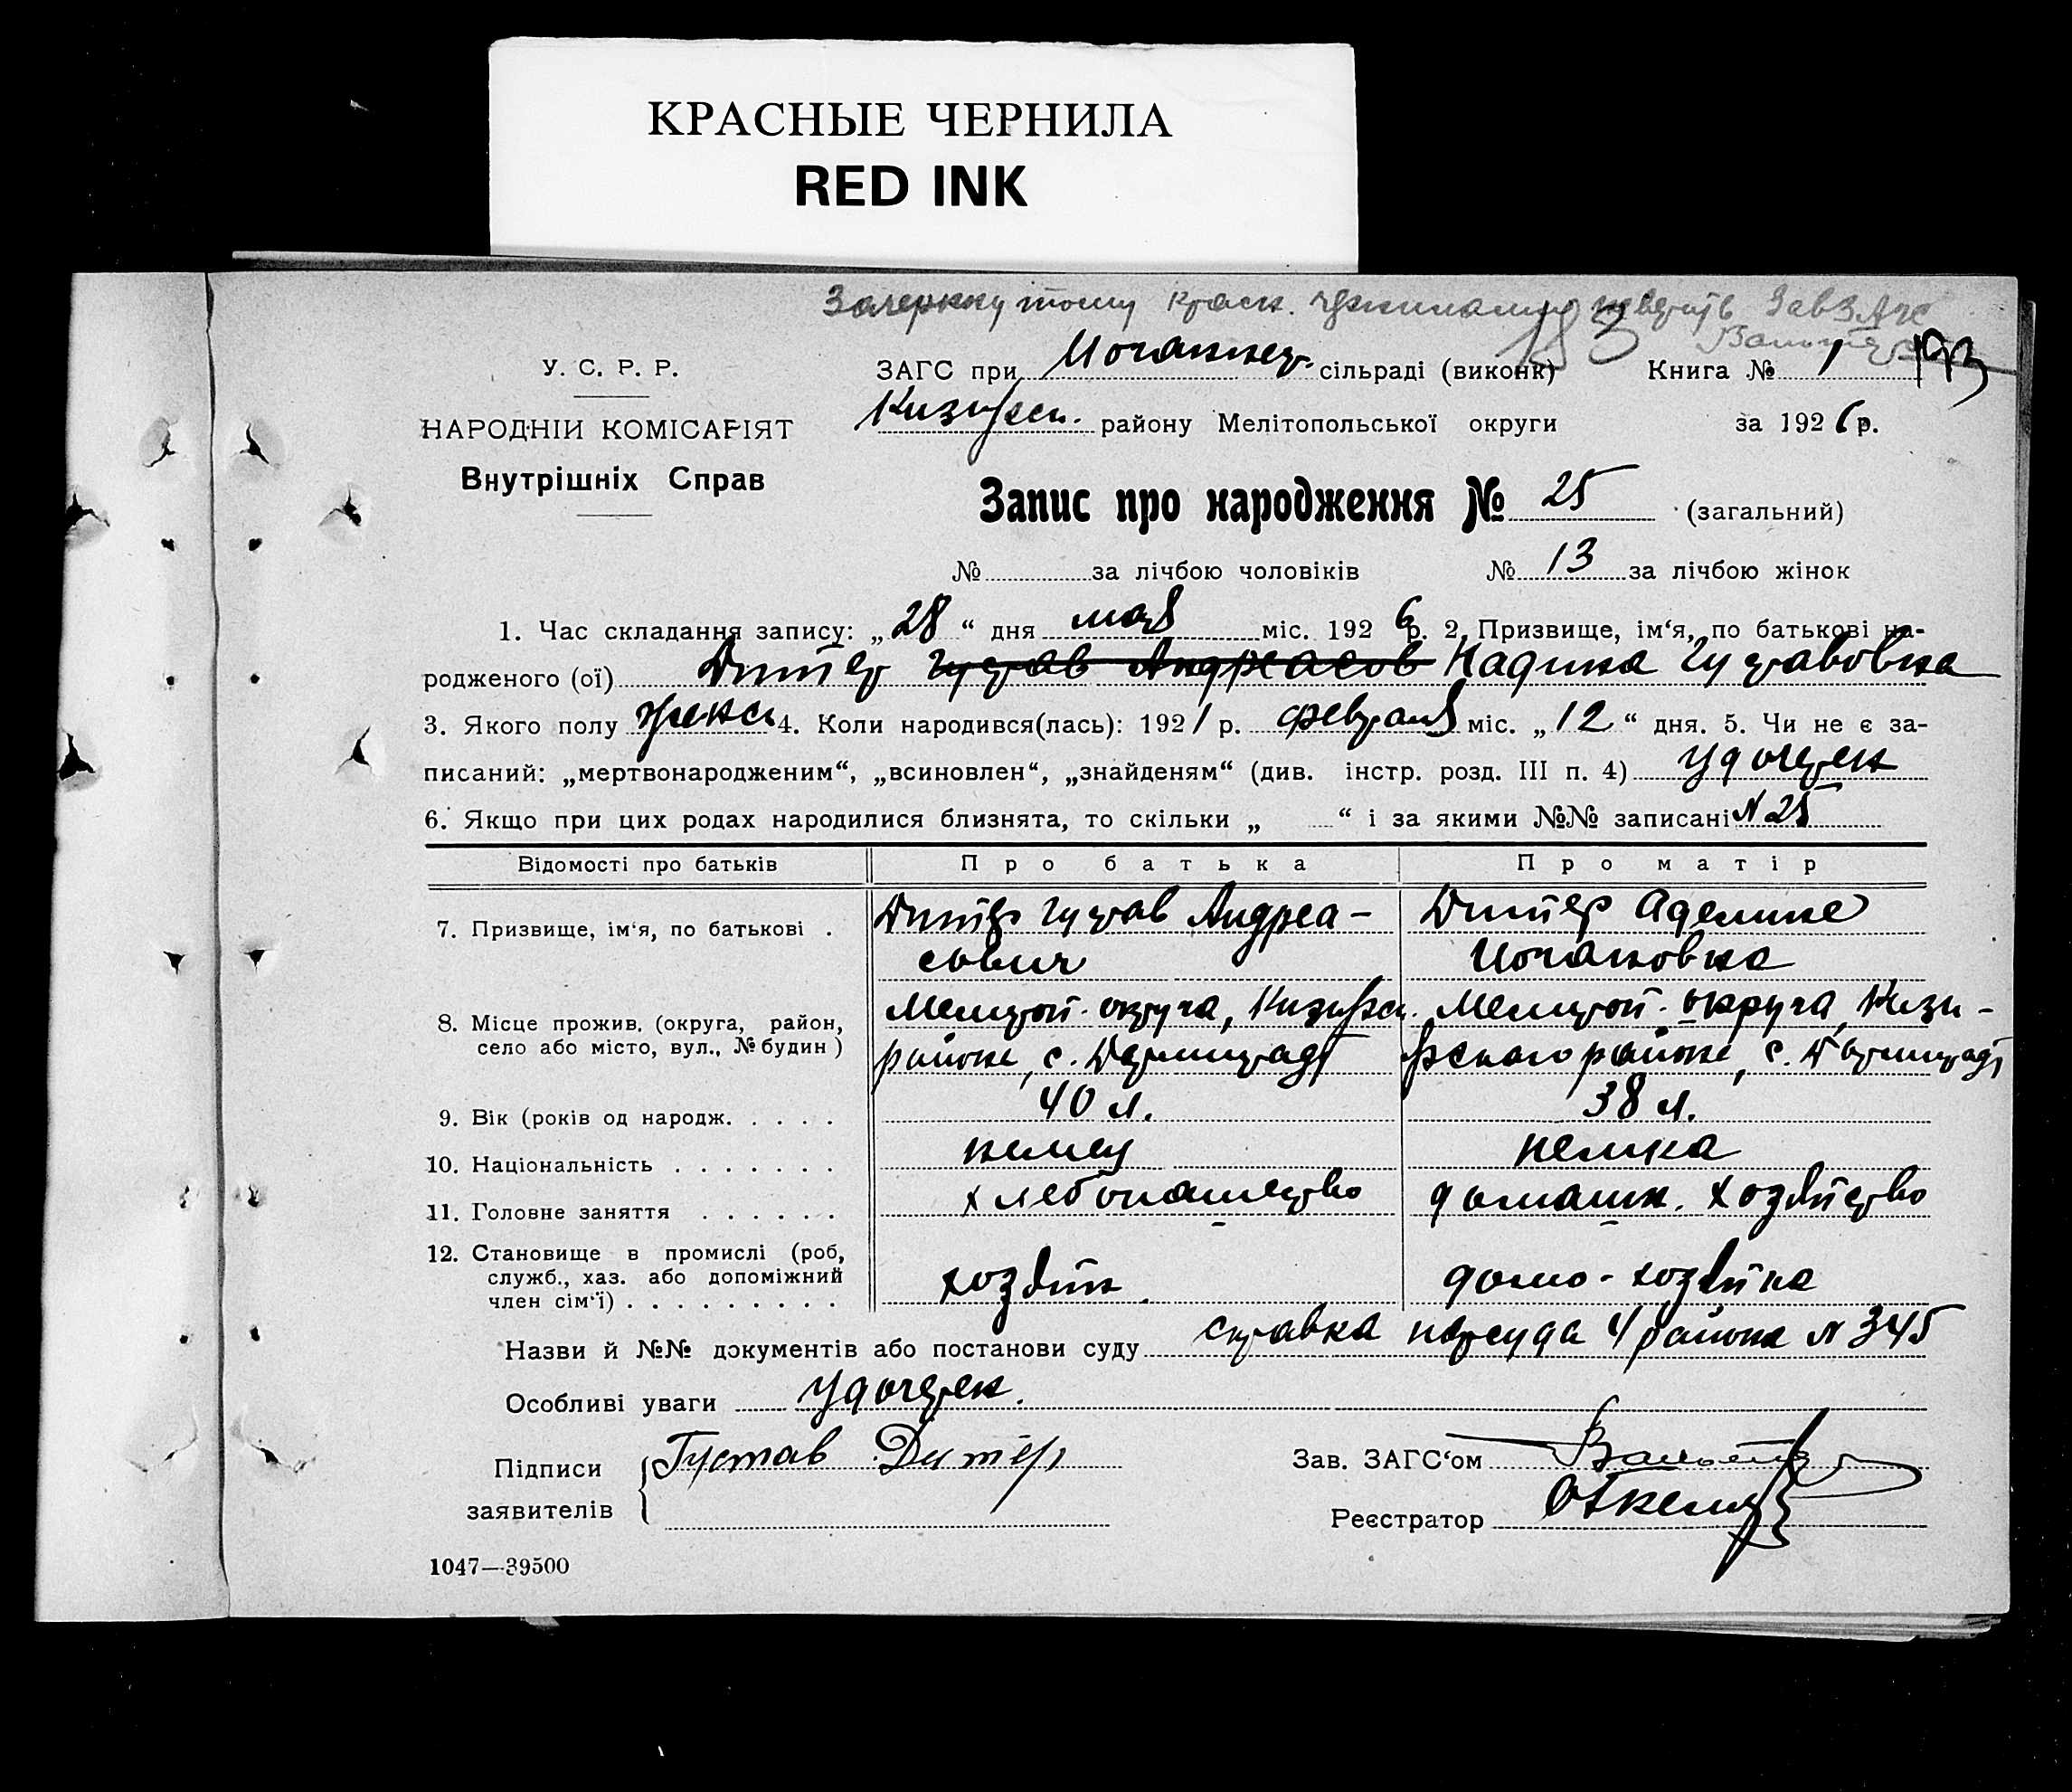 КРАСНЫЕ ЧЕРНИЛА
RED INK
Зачеркнутому красн. чернилами не верить ЗавЗАГС
Вальтер
183
193
У. С. Р. Р.
НАРОДНІЙ КОМІСАРІЯТ
Внутрішніх Справ
ЗАГС при Иоганнер. сільраді (виконк) Книга № 1
Кизиярск. району Мелітопольської округи за 1926 р.
Запис про народження № 25 (загальний)
№ за лічбою чоловіків № 13 за лічбою жінок
1. Час складання запису: „28“ дня мая міс. 1926 р. 2. Призвище, ім‘я, по батькові на-
родженого (ої) Дитер Густав Андреасов Надина Густавовна
3. Якого полу женск 4. Коли народився(лась): 1921 р. февраля міс. „12“ дня. 5. Чи не є за-
писаний: „мертвонародженим“, „всиновлен“, „знайденям“ (див. інстр. розд. III п. 4) удочерен
6. Якщо при цих родах народилися близнята, то скільки „ “ і за якими №№ записані N 25
Відомості про батьків Про батька Про матір
7. Призвище, ім‘я, по батькові . Дитер Густав Андреа- Дитер Аделине
сович Иогановна
8. Місце прожив. (округа, район, Мелитоп. округа, Кизиярск. Мелитоп. округа, Кизи-
село або місто, вул., № будин) района, с. Дармштадт ярского района, с. Дармштадт
9. Вік (років од народж. . . . . 40 л. 38 л.
10. Національність . . . . . . . немец немка
11. Головне заняття . . . . . . хлебопашество домашн. хозяйство
12. Становище в промислі (роб,
служб., хаз. або допоміжний хозяин. домо-хозяйка
член сім‘ї) . . . . . . . . .
Назви й №№ документів або постанови суду справка нарсуда 4 района N 345
Особливі уваги удочерен.
Підписи Густав Дитер Зав. ЗАГС‘ом Вальтер
заявителів Реєстратор
1047—39500